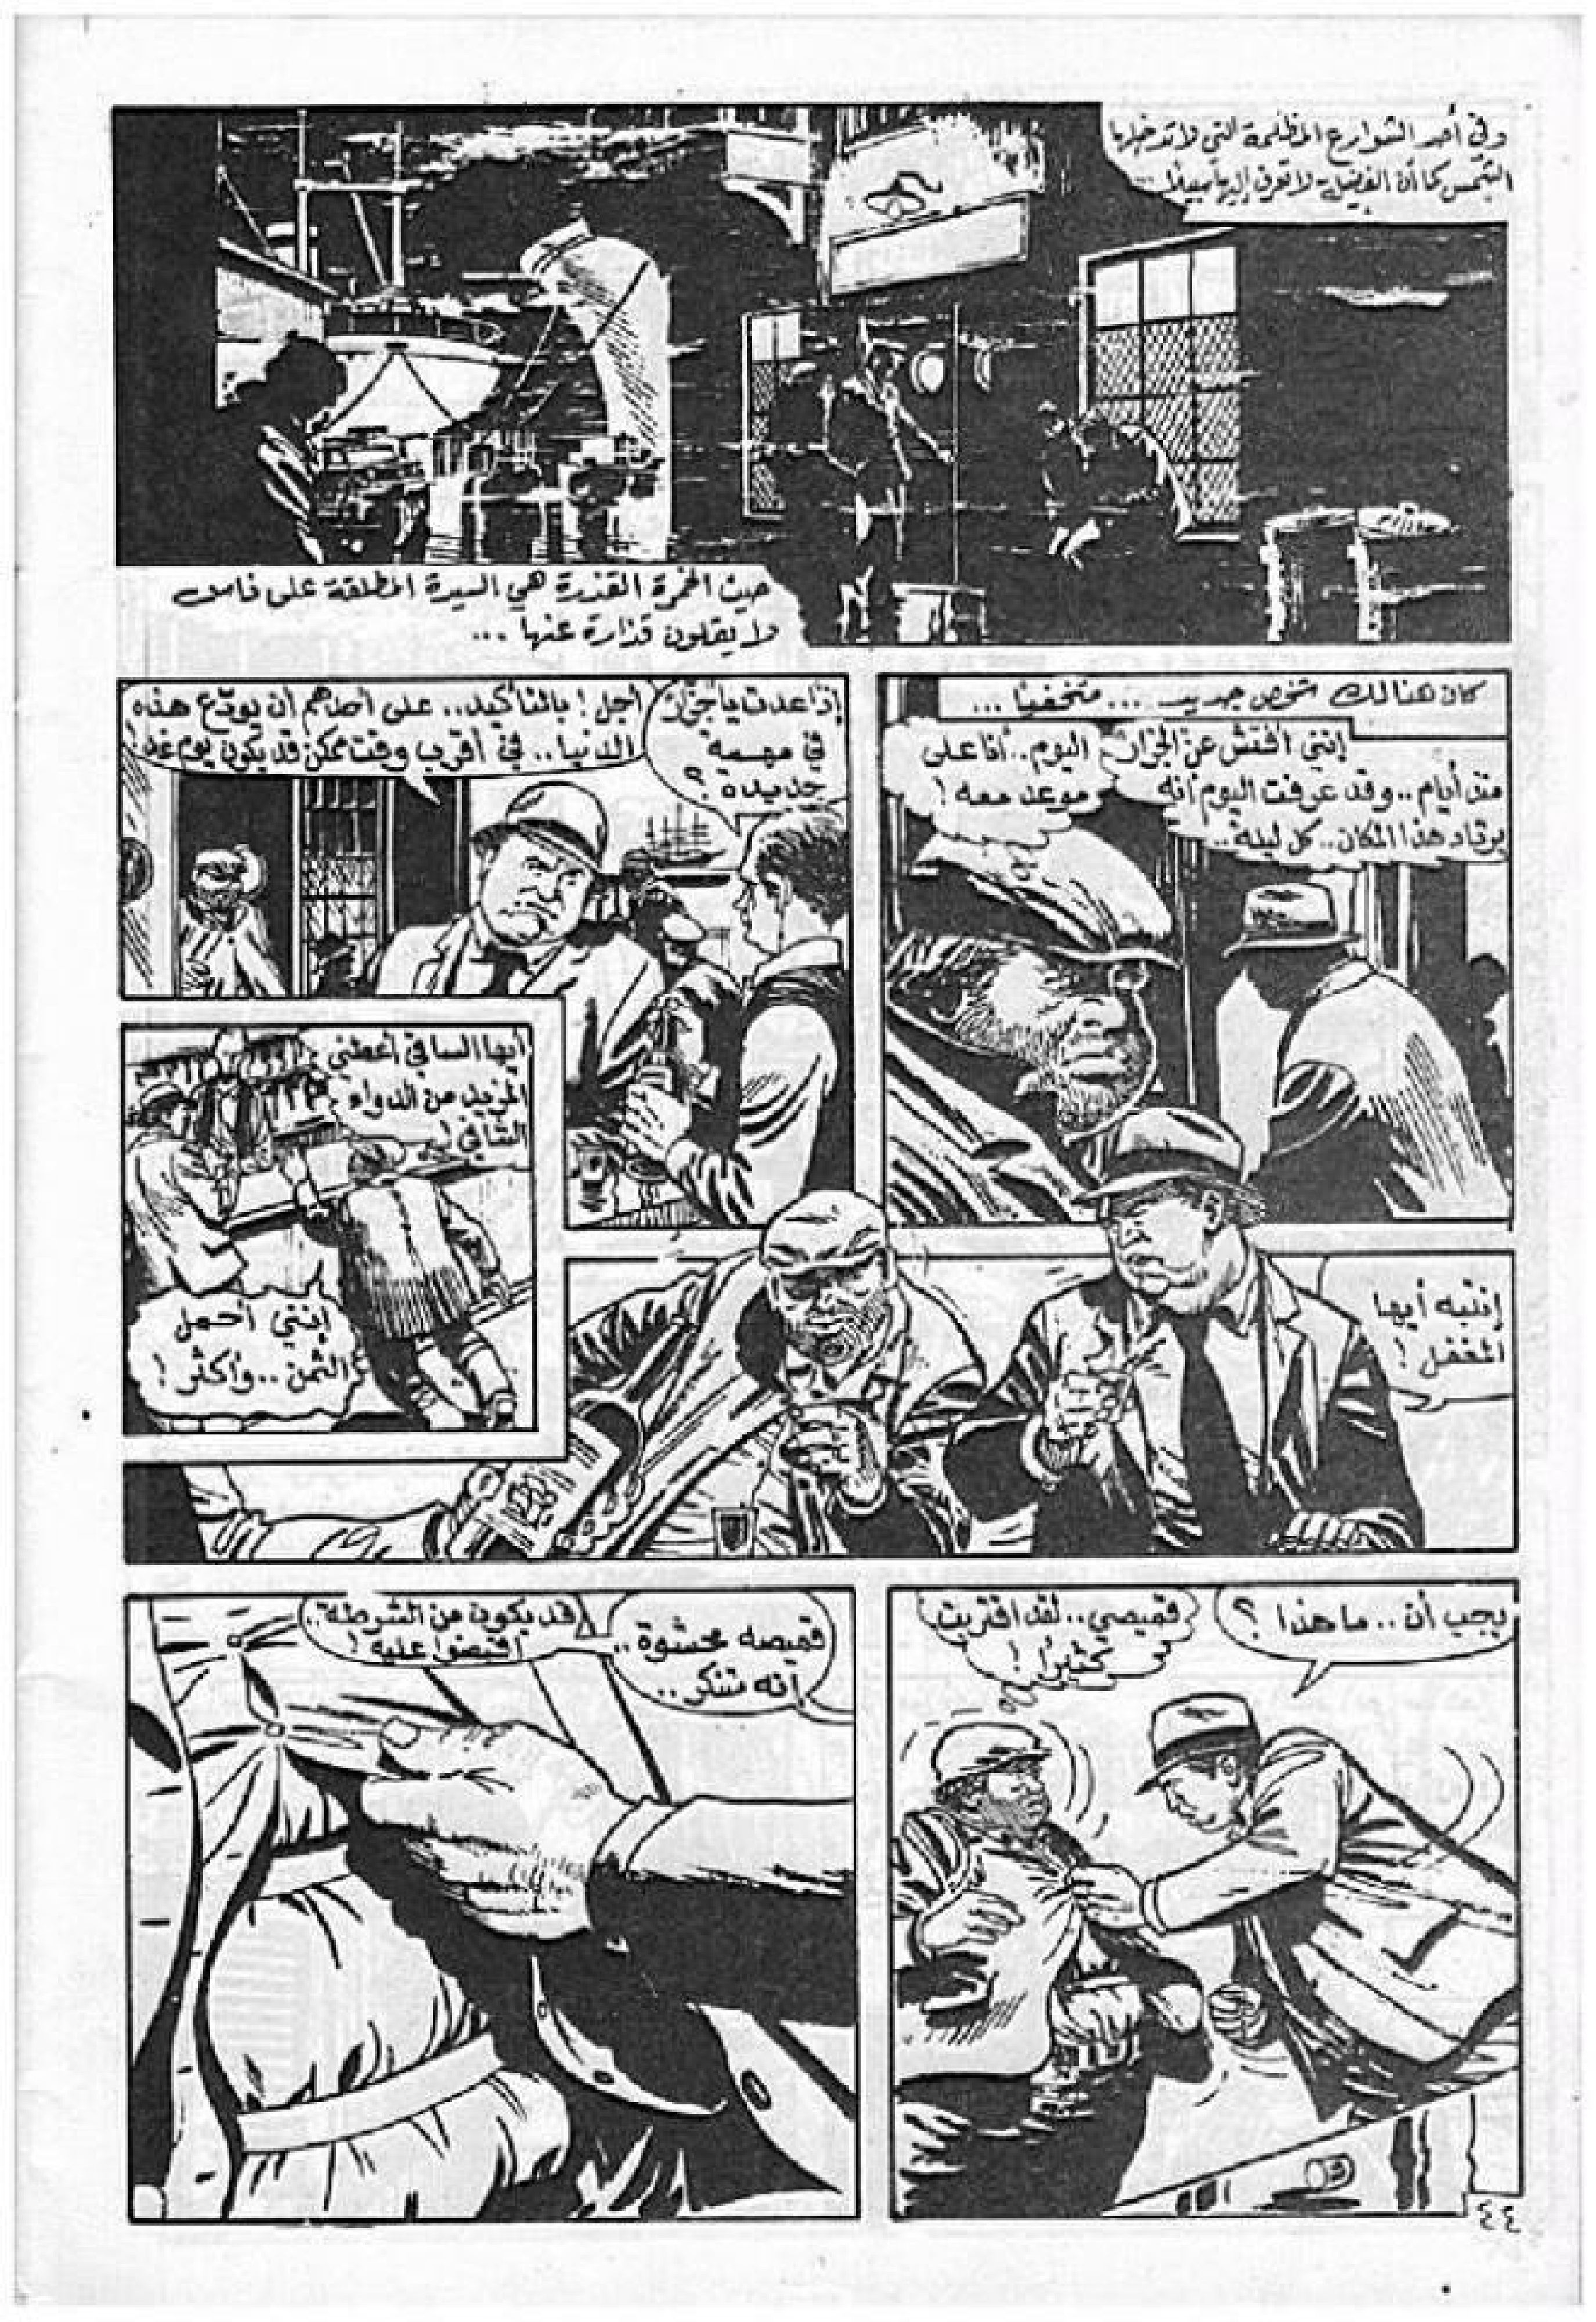 وفي أحد الشوارع المظلمة التي لا تدخلها
الشمس كما أن الفضيلة لا تعرف إليها سبيلاً...
حيث الخمرة القذرة هي السيدة المطلقة على ناس
لا يقلون قذارة عنها ...
كان هنالك شخص جديد ... متخفياً ...
إنني أفتش عن الجزار
منذ أيام.. وقد عرفت اليوم أنه
يرتاد هذا المكان.. كل ليلة..
اليوم.. أنا على
موعد معه!
إذاً عدت يا جزار
في مهمة
جديدة؟
أجل! بالتأكيد.. على أحدهم أن يودّع هذه
الدنيا.. في أقرب وقت ممكن قد يكون يوم غد!
أيها الساقي أعطني
المزيد من الدواء
الشافي!
إنني أحمل
الثمن.. وأكثر!
إنتبه أيها
المغفل!
يجب أن.. ما هذا؟
قميصي.. لقد اقتربت
كثيراً!
قميصه محشوة..
إنه متنكر..
قد يكون من الشرطة..
اقبضوا عليه!
٤٤